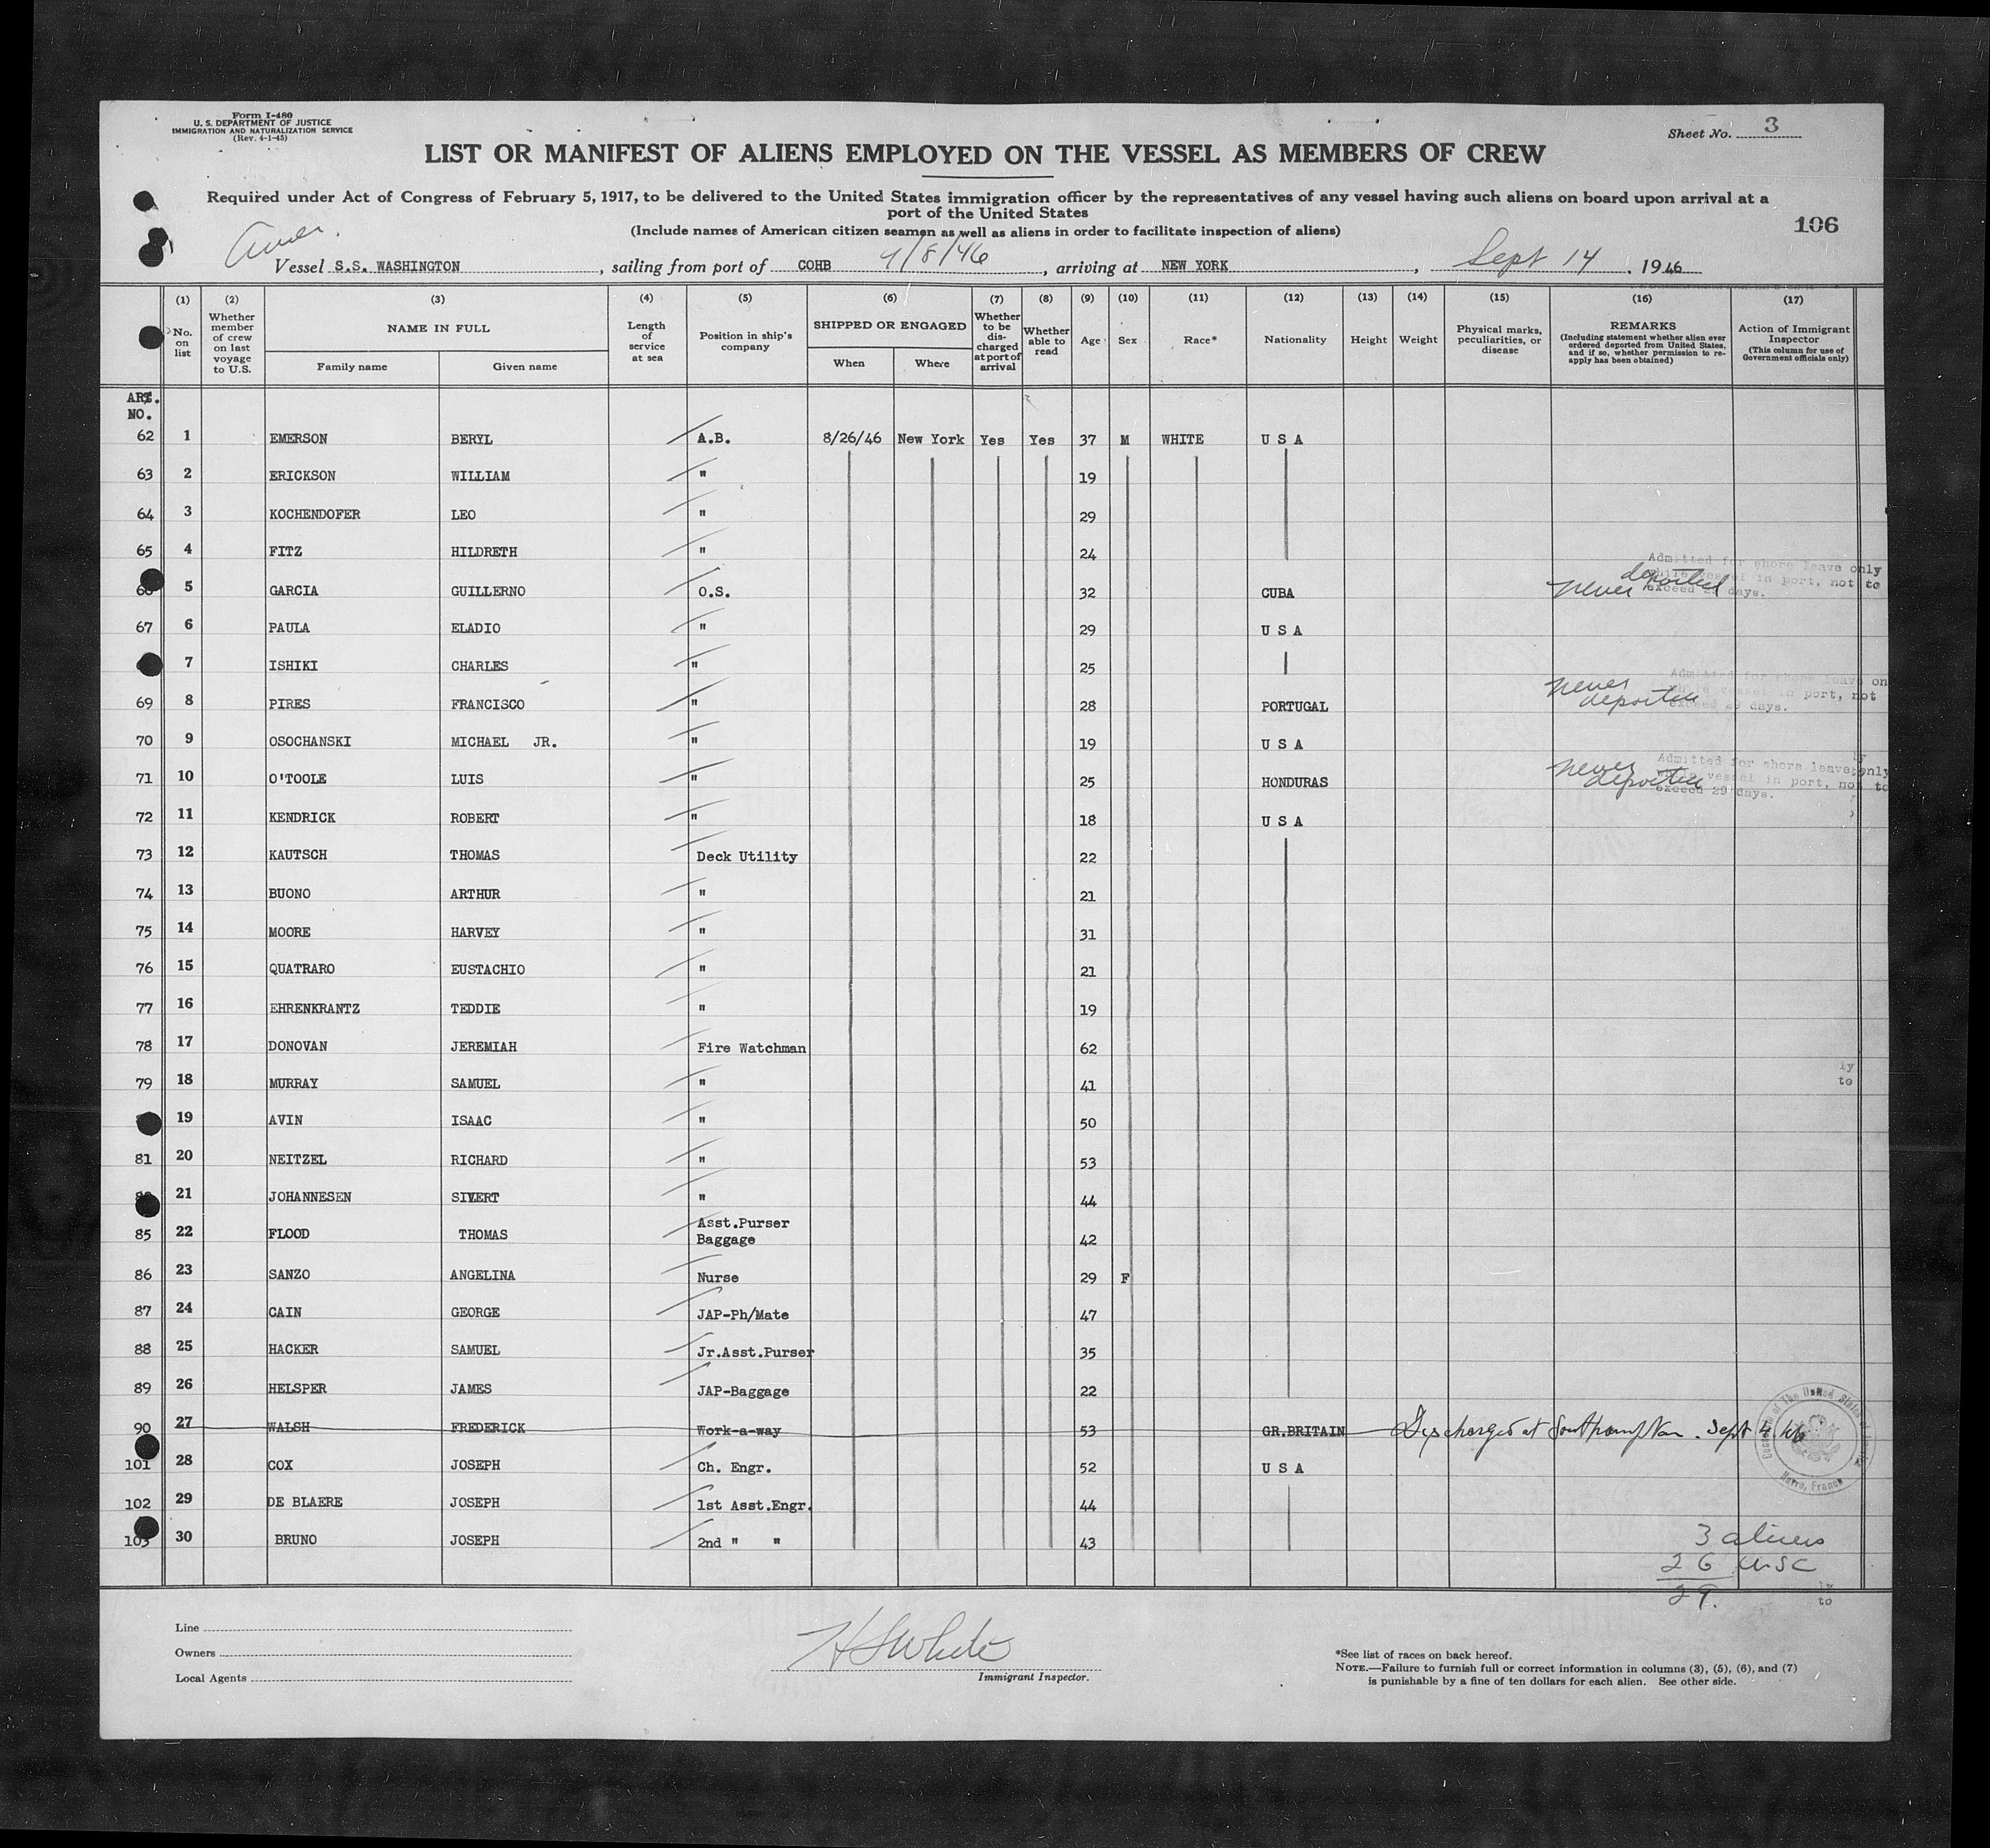 Form I-480
U. S. DEPARTMENT OF JUSTICE
IMMIGRATION AND NATURALIZATION SERVICE
(Rev. 4-1-45)
Sheet No. 3
LIST OR MANIFEST OF ALIENS EMPLOYED ON THE VESSEL AS MEMBERS OF CREW
Required under Act of Congress of February 5, 1917, to be delivered to the United States immigration officer by the representatives of any vessel having such aliens on board upon arrival at a
port of the United States
106
(Include names of American citizen seamen as well as aliens in order to facilitate inspection of aliens)
Amer.
Vessel S.S. WASHINGTON, sailing from port of COHB 9/8/46, arriving at NEW YORK, Sept 14, 1946
(1) (2) (3) (4) (5) (6) (7) (8) (9) (10) (11) (12) (13) (14) (15) (16) (17)
No. on list
Whether member of crew on last voyage to U.S.
NAME IN FULL
Family name
Given name
Length of service at sea
Position in ship's company
SHIPPED OR ENGAGED
When
Where
Whether to be discharged at port of arrival
Whether able to read
Age
Sex
Race*
Nationality
Height
Weight
Physical marks, peculiarities, or disease
REMARKS
(Including statement whether alien ever ordered deported from United States, and if so, whether permission to reapply has been obtained)
Action of Immigrant Inspector
(This column for use of Government officials only)
ART.
NO.
62 1 EMERSON BERYL A.B. 8/26/46 New York Yes Yes 37 M WHITE U S A
63 2 ERICKSON WILLIAM " 19
64 3 KOCHENDOFER LEO " 29
65 4 FITZ HILDRETH " 24
5 GARCIA GUILLERNO O.S. 32 CUBA never deported Admitted for shore leave only while vessel in port, not to exceed 29 days.
67 6 PAULA ELADIO " 29 U S A
7 ISHIKI CHARLES " 25
69 8 PIRES FRANCISCO " 28 PORTUGAL never deported Admitted for shore leave on while vessel in port, not exceed 29 days.
70 9 OSOCHANSKI MICHAEL JR. " 19 U S A
71 10 O'TOOLE LUIS " 25 HONDURAS never deported Admitted for shore leave only while vessel in port, not to exceed 29 days.
72 11 KENDRICK ROBERT " 18 U S A
73 12 KAUTSCH THOMAS Deck Utility 22
74 13 BUONO ARTHUR " 21
75 14 MOORE HARVEY " 31
76 15 QUATRARO EUSTACHIO " 21
77 16 EHRENKRANTZ TEDDIE " 19
78 17 DONOVAN JEREMIAH Fire Watchman 62
79 18 MURRAY SAMUEL " 41 ly to
19 AVIN ISAAC " 50
81 20 NEITZEL RICHARD " 53
21 JOHANNESEN SIVERT " 44
85 22 FLOOD THOMAS Asst.Purser Baggage 42
86 23 SANZO ANGELINA Nurse 29 F
87 24 CAIN GEORGE JAP-Ph/Mate 47
88 25 HACKER SAMUEL Jr.Asst.Purser 35
89 26 HELSPER JAMES JAP-Baggage 22
90 27 WALSH FREDERICK Work-a-way 53 GR.BRITAIN Discharged at Southampton. Sept 4 46
101 28 COX JOSEPH Ch. Engr. 52 U S A
102 29 DE BLAERE JOSEPH 1st Asst.Engr. 44
103 30 BRUNO JOSEPH 2nd " " 43
Havre, France
3 aliens
26 USC
29.
to
Line
Owners
Local Agents
H S White
Immigrant Inspector.
*See list of races on back hereof.
NOTE.—Failure to furnish full or correct information in columns (3), (5), (6), and (7)
is punishable by a fine of ten dollars for each alien. See other side.